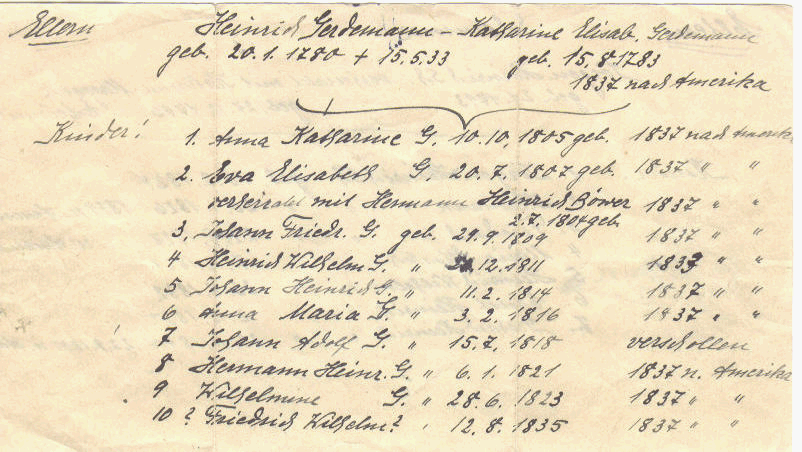 Eltern Heinrich Gerdemann – Katharine Elisab. Gerdemann
geb. 20.1.1780 + 15.5.33 geb. 15.8.1783
1837 nach Amerika
Kinder! 1. Anna Katharine G. 10.10.1805 geb. 1837 nach Amerika
2. Eva Elisabeth G. 20.7.1807 geb. 1837 " "
verheiratet mit Hermann Heinrich Böwer 1837 " "
2.7.1804 geb.
3. Johann Friedr. G. geb. 29.9.1809 1837 " "
4 Heinrich Wilhelm G. " 12.1811 1837 " "
5 Johann Heinrich G. " 11.2.1814 1837 " "
6 Anna Maria G. " 3.2.1816 1837 " "
7 Johann Adolf G. " 15.7.1818 verschollen
8 Hermann Heinr. G. " 6.1.1821 1837 n. Amerika
9 Wilhelmine G. " 28.6.1823 1837 " "
10? Friedrich Wilhelm? " 12.8.1835 1837 " "